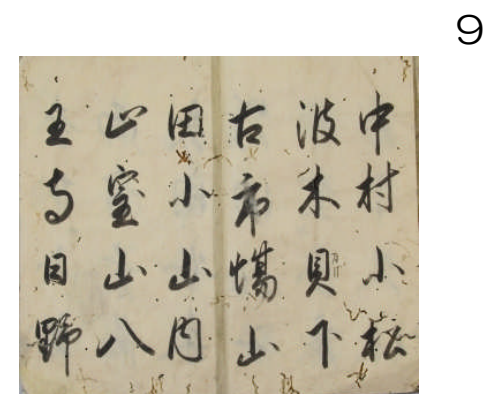 9
中村小松
波木貝下
古市場山
田小山内
山室山八
王寺日野